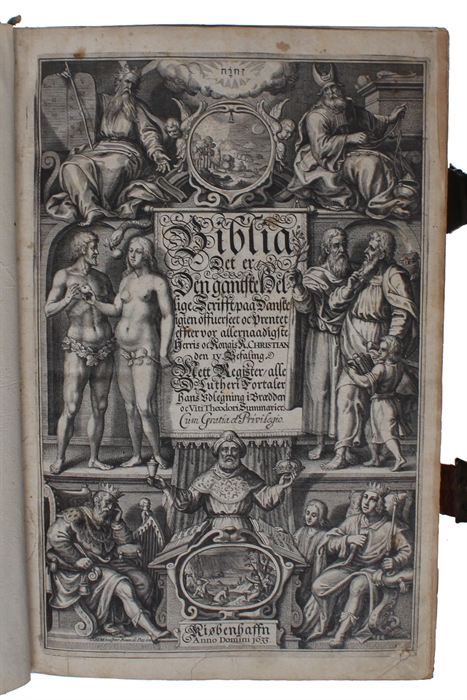 יהוה
Biblia
Det er
Den gantske Hel-
lige Scrifft, paa Danske
igien offuerseet oc Prentet
effter vor allernaadigste
Herris oc Kongis K. CHRISTIAN
den IV. Befaling
Mett Register, alle
D. Lutheri Fortaler
hans Vdlegning i Brædden
oc Viti Theodori Summarier.
Cum Gratia et Privilegio.
Kiøbenhaffn
Anno Domini 1633